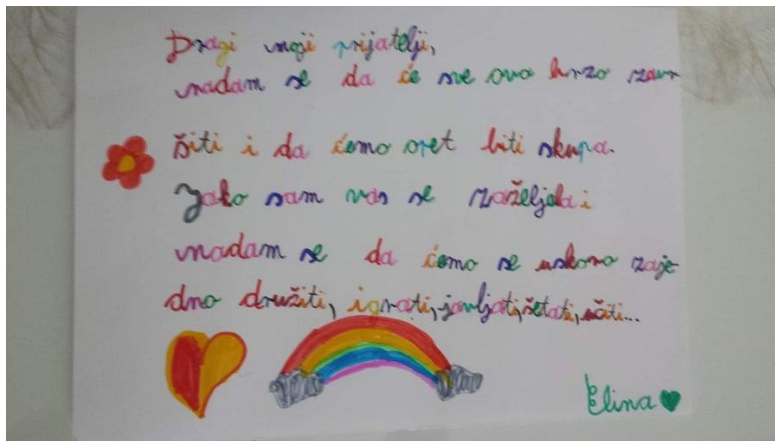 Dragi moji prijatelji,
nadam se da će sve ovo brzo zavr
šiti i da ćemo opet biti skupa.
Jako sam vas se zaželjela i
nadam se da ćemo se uskoro zaje
dno družiti, igrati, javljati, šetati, učiti...
Elina